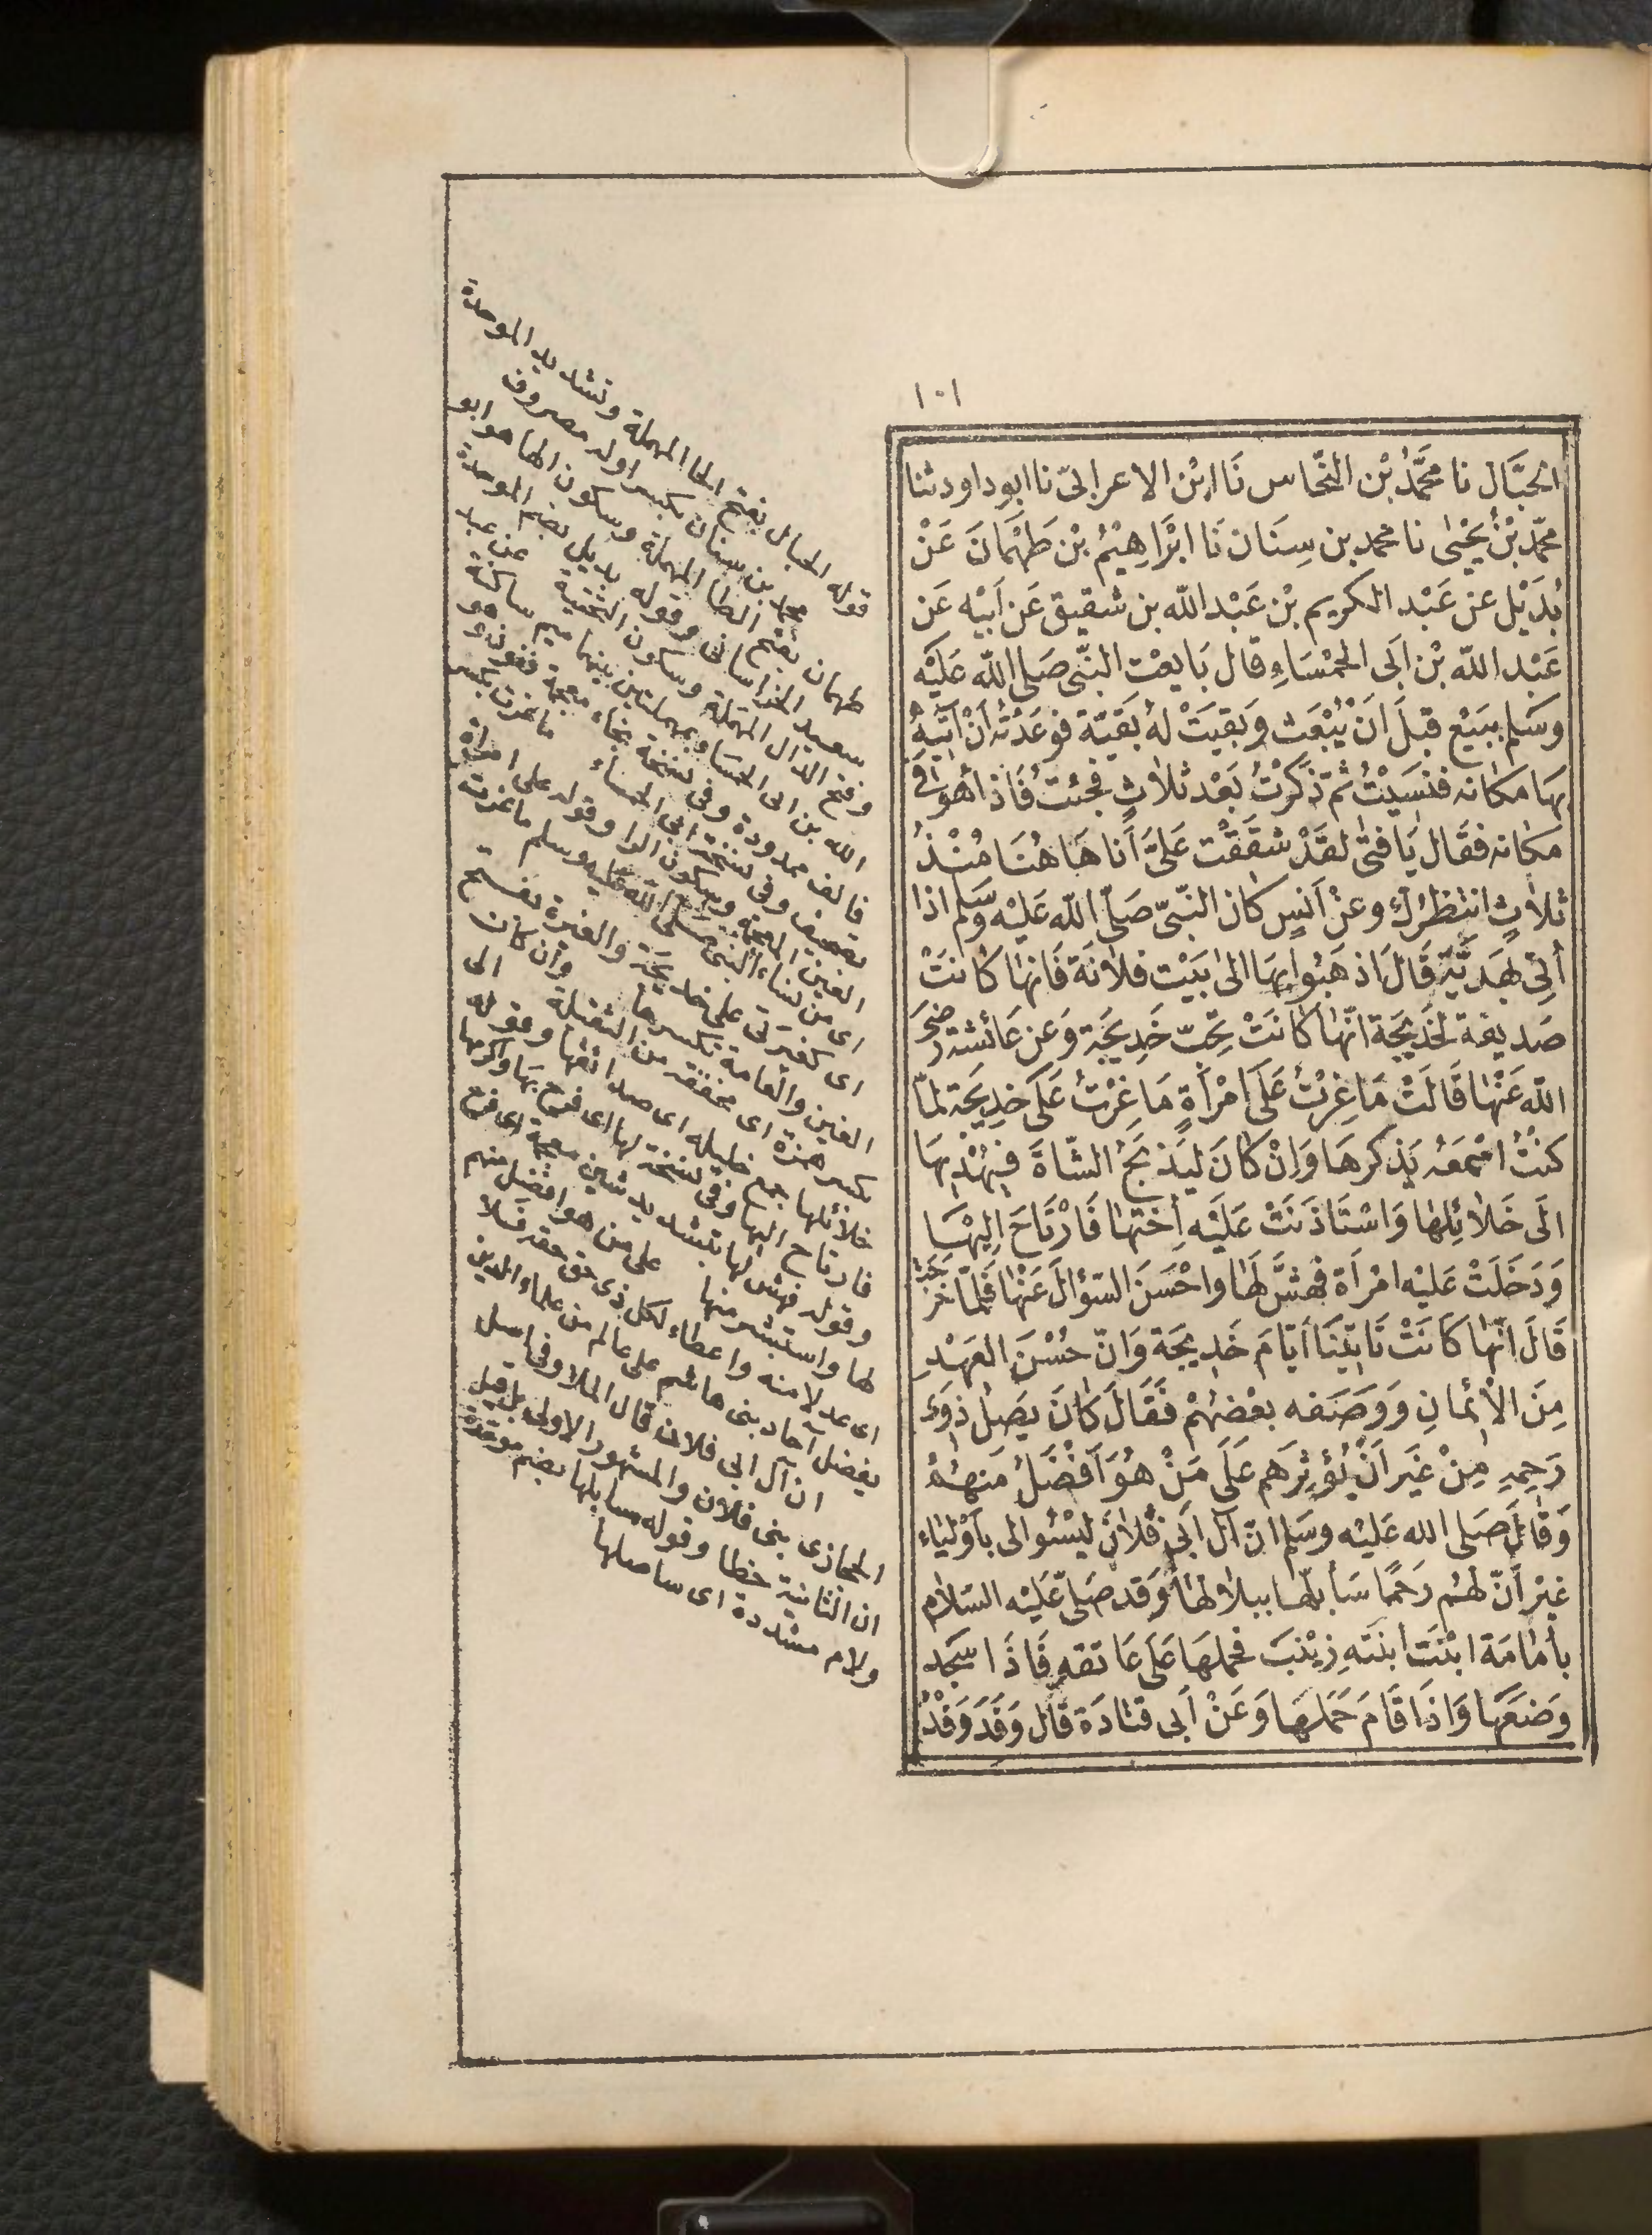 ١٠١
الحَبَّال نا مُحَمَّدُ بْن النحّاس نَا ابْن الاعرابىّ نا ابو داود ثنا
محمّد بْنُ يَحْيٰى نا محمد بن سِنَان نَا ابْرَاهِيْمُ بْن طَهْمَانَ عَنْ
بُدَيْل عن عَبْد الكريم بْن عَبْد الله بن شقيق عَن اَبيْه عَن
عَبْد الله بْن اَبى الحَمْسَاءِ قال بَايعْت النّبى صَلى الله عَلَيْه
وسَلم ببَيْع قبلَ اَنْ يُبْعَث وَبَقيَتْ لهُ بَقيّة فوعَدْتُه اَنْ اٰتيَهُ
بهَا مَكَانه فنَسيْتُ ثمّ ذكَرْتُ بَعْد ثلاثٍ فجئتُ فَاذا هُوَ فى
مَكانه فقَال يَا فتٰى لقَدْ شقَقْت عَلىَّ اَنا هَاهُنَا مُنْذُ
ثلاثٍ انتظرُكَ وعَنْ اَنسٍ كان النّبىّ صَلّى الله عَليْه وَسَلم اذا
اُتِىَ بهَديَّة قَالَ اذهَبُوا بهَا الىٰ بَيْت فلانَة فَانهَا كَانتْ
صَديقة لخَديجَة انّهَا كَانَتْ تحبّ خَديجَة وَعن عَائشة رَضىَ
الله عَنْهَا قَالَتْ مَا غِرْتُ عَلَى امْرَأةٍ مَا غِرْتُ عَلَى خَدِيجَة لمَا
كنْتُ اسْمَعُه يَذكرهَا وَاِنْ كَانَ ليَذبَحُ الشّاةَ فيُهْديهَا
الَى خَلائِلهَا وَاسْتَاذَنَتْ عَليْه اُختهَا فَارْتَاحَ اليْهَا
وَدَخَلَتْ عَليْه امْرأة فهَشَّ لَهَا واحْسَنَ السّؤالَ عَنْهَا فَلمّا خَرَجَتْ
قَالَ انّهَا كَانَتْ تَاتيْنَا ايّامَ خَديجَة وَانّ حُسْنَ العَهْدِ
مِنَ الْاِيْمَانِ وَوَصَفه بعْضهُمْ فَقَالَ كانَ يَصِلُ ذَوى
رَحِمِه مِنْ غَير اَنْ يُؤْثِرَهم عَلَى مَنْ هُوَ اَفْضَلُ مَنهُمْ
وَقَال صَلى الله عَليْه وسَلم انّ آل اَبى فُلانٍ ليْسُوا لى باَوْليَاء
غيْرَ اَنّ لهُم رَحمًا سَأبلهَا ببلالهَا وَقد صَلّى عَليْه السَلام
بأمَامَة ابْنَت ابنَتهِ زيْنبَ فحملهَا عَلَى عَاتقه فَاذَا سَجَد
وَضعَهَا وَاذَا قَامَ حَمَلهَا وَعَنْ اَبى قتادَة قَال وَفَدَ وَفْدٌ
قوله الحبال بفتح الحا المهملة وتشديد الموحدة
محمد بن سنان بكسر اوله مصروف
طهمان بفتح الطا المهملة وسكون الها هو ابو
سعيد الخراسانى وقوله بديل بضم الموحدة
وفتح الدال المهملة وسكون التحتية عن عبد
الله بن ابى الحمساء بمهملتين بينهما ميم ساكنة
فالف ممدودة وفى نسخة بخاء معجمة فنون وهو
تصحيف وفى نسخة ابى الحمساء ما غرت بكسر
الغين المعجمة وسكون الرا وقوله على امرأة
اى من نساء النبى صلى الله عليه وسلم ما غرت
اى كغيرتى على خديجة والغيرة بفتح
الغين والعامة تكسرها وان كان
بكسر همزة اى مخففة من الثقيلة الى
خلائلها جمع خليله اى صدائقها وقوله
فارتاح اليها وفى نسخة لها اى فرح بها واكرمها
وقوله فهش لها بتشديد شين معجمة اى فرح
لها واستبشر منها على من هو افضل منهم
اى عدلا منه واعطاء لكل ذى حق حقه فلا
يفضل آحاد بنى هاشم على عالم من علماء الدين
ان آل ابى فلان قال الملا وفى اصل
الحجازى بنى فلان والمشهور الاولى بل قيل
ان الثانية خطا وقوله سابلها بضم موحدة
ولام مشددة اى ساصلها